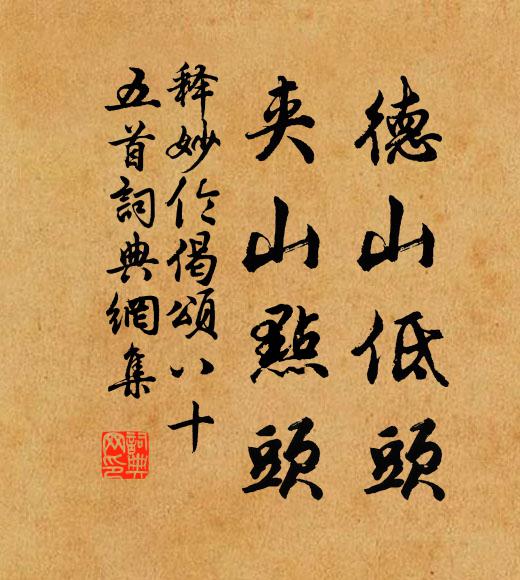 德山低頭
夾山點頭
释妙伦偈頌八十
五首詞典網集
詞典网印